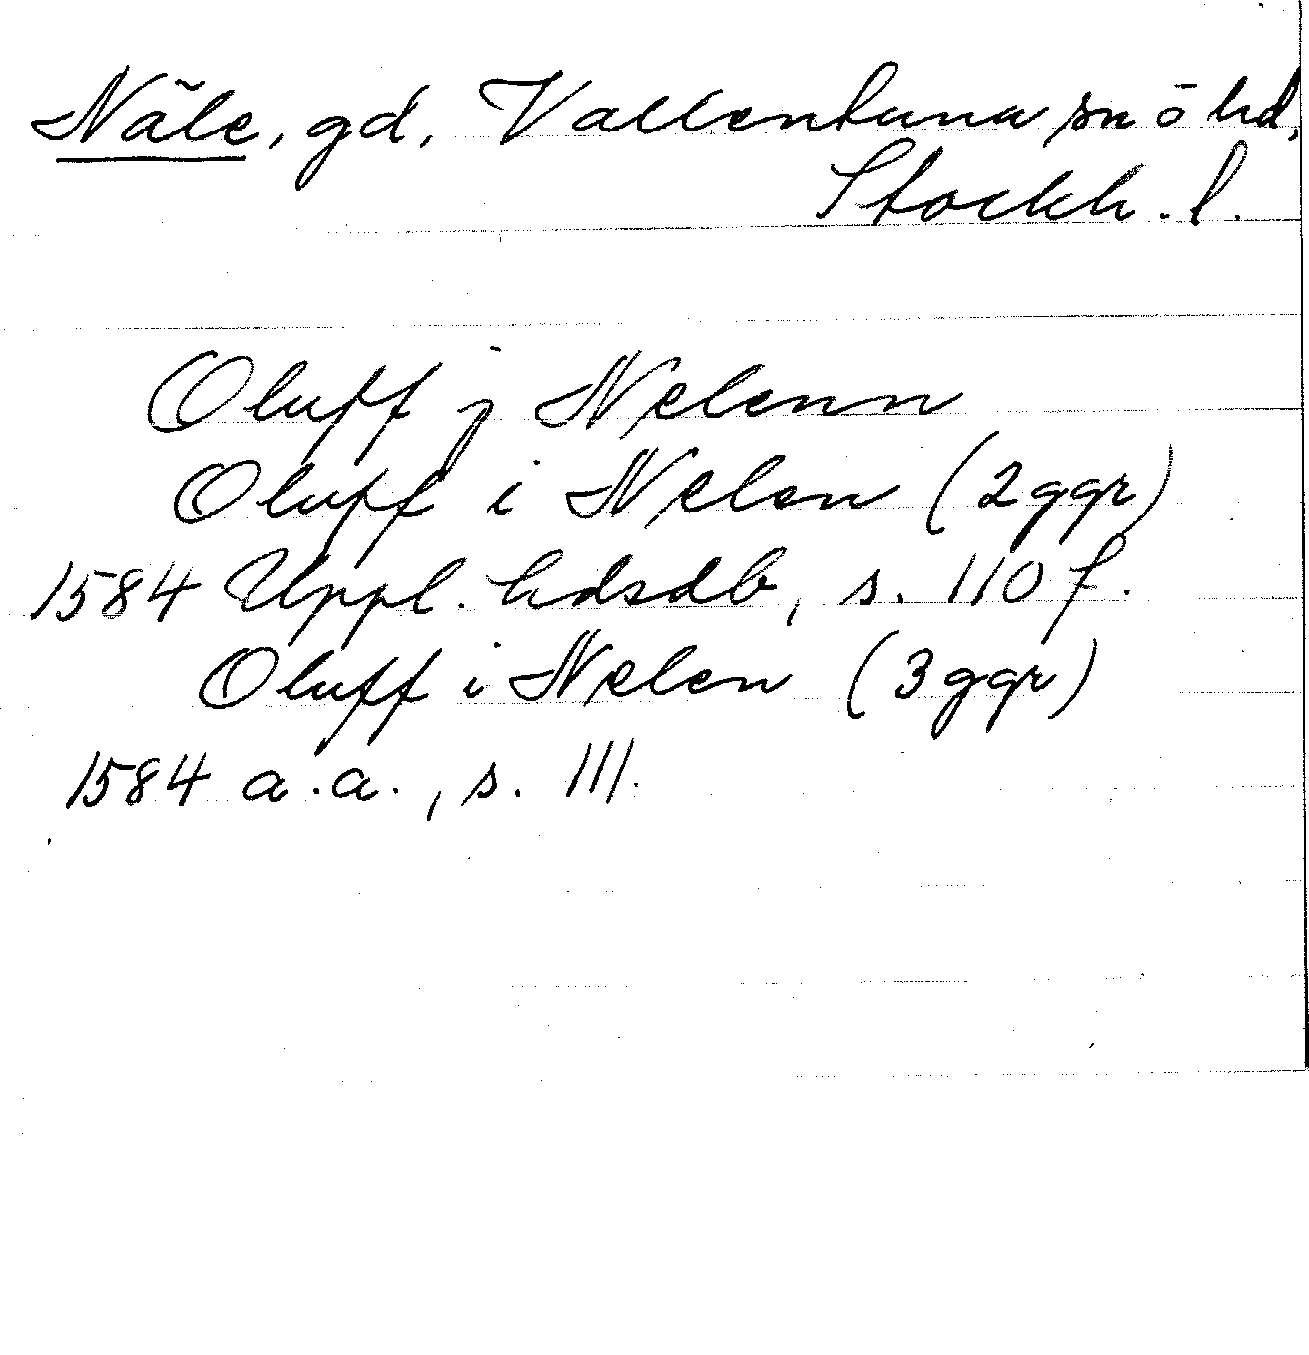 Näle, gd, Vallentuna sn o hd,
Stockh. l.
Oluff j Nelenn
Oluff i Nelen (2 ggr)
1584 Uppl. hdsdb, s. 110 f.
Oluff i Nelen (3 ggr)
1584 a.a., s. 111.